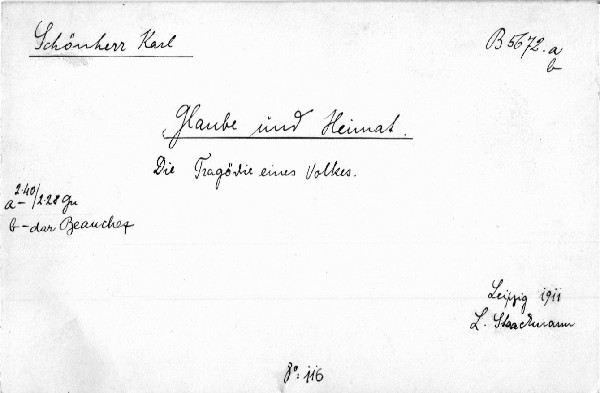 Schönherr Karl
B 5672. a
b
Glaube und Heimat.
Die Tragödie eines Volkes.
2·40/2·28 Gr
a –
b – dar Beauchez
Leipzig 1911
L. Staackmann
8°: 116